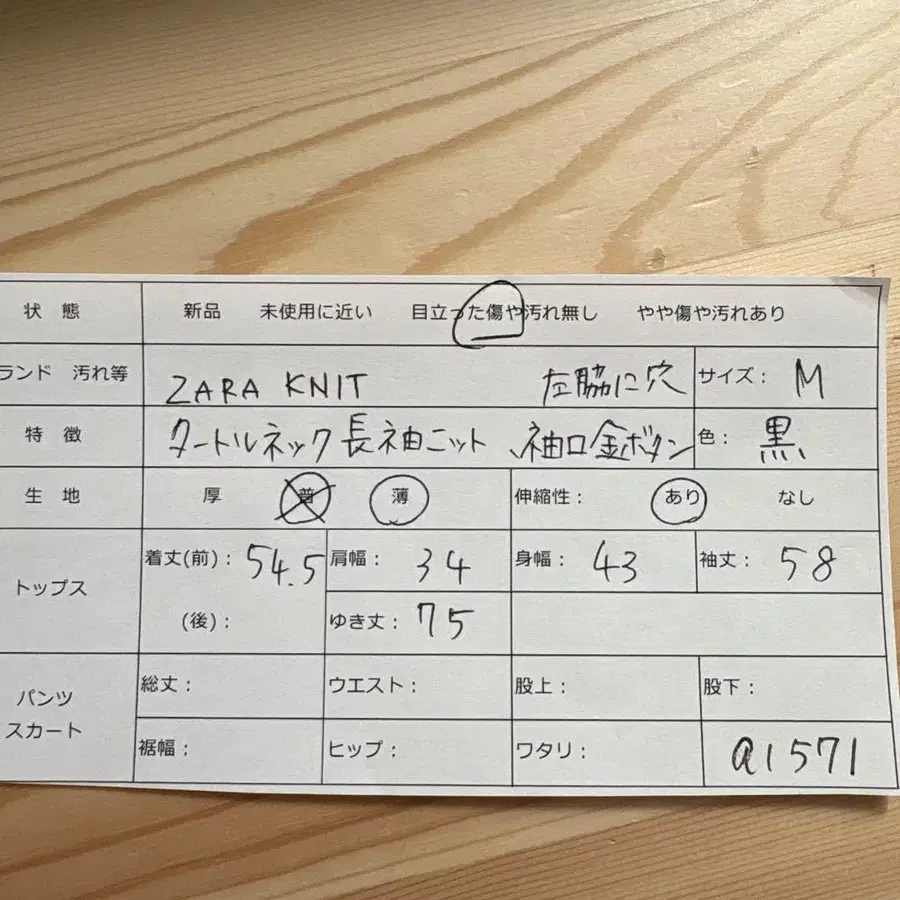 状 態 新品 未使用に近い 目立った傷や汚れ無し やや傷や汚れあり
ランド 汚れ等 ZARA KNIT 左脇に穴 サイズ： M
特 徴 タートルネック長袖ニット、袖口金ボタン 色： 黒
生 地 厚 普 薄 伸縮性： あり なし
トップス 着丈(前)： 54.5 肩幅： 34 身幅： 43 袖丈： 58
(後)： ゆき丈： 75
パンツ スカート 総丈： ウエスト： 股上： 股下：
裾幅： ヒップ： ワタリ： a1571